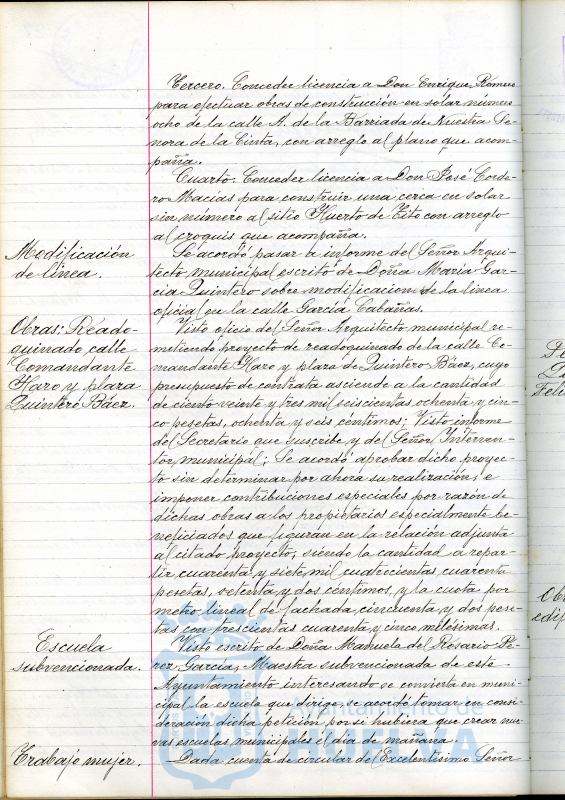 Tercero. Conceder licencia a Don Enrique Romero
para efectuar obras de construcción en solar número
ocho de la calle A. de la Barriada de Nuestra Se-
ñora de la Cinta, con arreglo al plano que acom-
paña.
Cuarto. Conceder licencia a Don José Corde-
ro Macías para construir una cerca en solar
sin número al sitio Huerto de Tito con arreglo
al croquis que acompaña.
Modificación
de linea.
Se acordó pasar a informe del Señor Arqui-
tecto municipal escrito de Doña Maria Gar-
cia Quintero sobre modificacion de la linea
oficial en la calle García Cabañas.
Obras: Reado-
quinado calle
Comandante
Haro y plaza
Quintero Báez.
Visto oficio del Señor Arquitecto municipal re-
mitiendo proyecto de readoquinado de la calle Co-
mandante Haro y plaza de Quintero Báez, cuyo
presupuesto de contrata asciende a la cantidad
de ciento veinte y tres mil seiscientas ochenta y cin-
co pesetas, ochenta y seis céntimos; Visto informe
del Secretario que suscribe y del Señor Interven-
tor municipal; Se acordó aprobar dicho proyec-
to sin determinar por ahora su realización, e
imponer contribuciones especiales por razón de
dichas obras a los propietarios especialmente be-
neficiados que figuran en la relación adjunta
al citado proyecto, siendo la cantidad a repar-
tir cuarenta y siete mil cuatrocientas cuarenta
pesetas, setenta y dos centimos, y la cuota por
metro lineal de fachada, cincuenta y dos pese-
tas con trescientas cuarenta y cinco milésimas.
Escuela
subvencionada.
Visto escrito de Doña Manuela del Rosario Pe-
rez García, Maestra subvencionada de este
Ayuntamiento interesando se convierta en muni-
cipal la escuela que dirige, se acordó tomar en consi-
deración dicha petición por si hubiera que crear nue-
vas escuelas municipales el día de mañana.
Trabajo mujer.
Dada cuenta de circular del Excelentísimo Señor
Ayuntamiento de
HUELVA